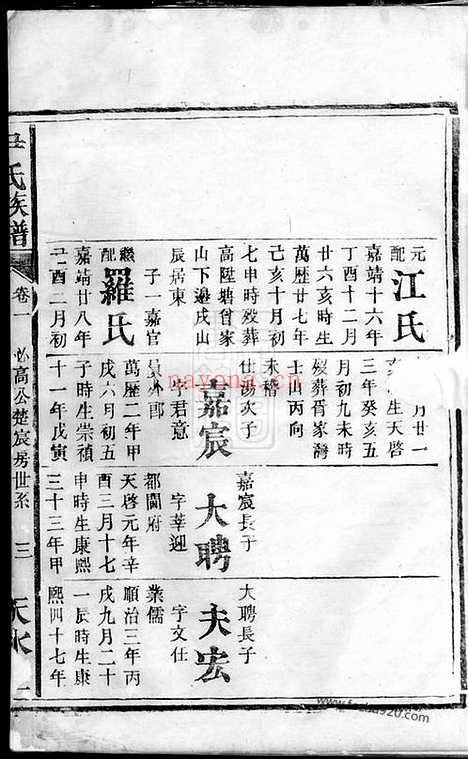 氏族譜
卷一
必高公楚宸房世系
三
天水
元配江氏
嘉靖十六年
丁酉十二月
廿六亥時生
萬歷廿七年
己亥十月初
七申時歿葬
高陞塘曾家
山下邊戌山
辰居東
子一嘉官
繼配羅氏
嘉靖廿八年
己酉二月初
月廿一
生天啓
三年癸亥五
月初九未時
歿葬胥家灣
土山丙向
未稽
仕旸次子
嘉宸
字君意
員外郎
萬歷二年甲
戌六月初五
子時生崇禎
十一年戊寅
嘉宸長子
大聘
字莘迎
都閫府
天啓元年辛
酉三月十七
申時生康熙
三十三年甲
大聘長子
夫宏
字文仕
業儒
順治三年丙
戌九月二十
一辰時生康
熙四十七年
nayona.cn
www.foxebug920.com